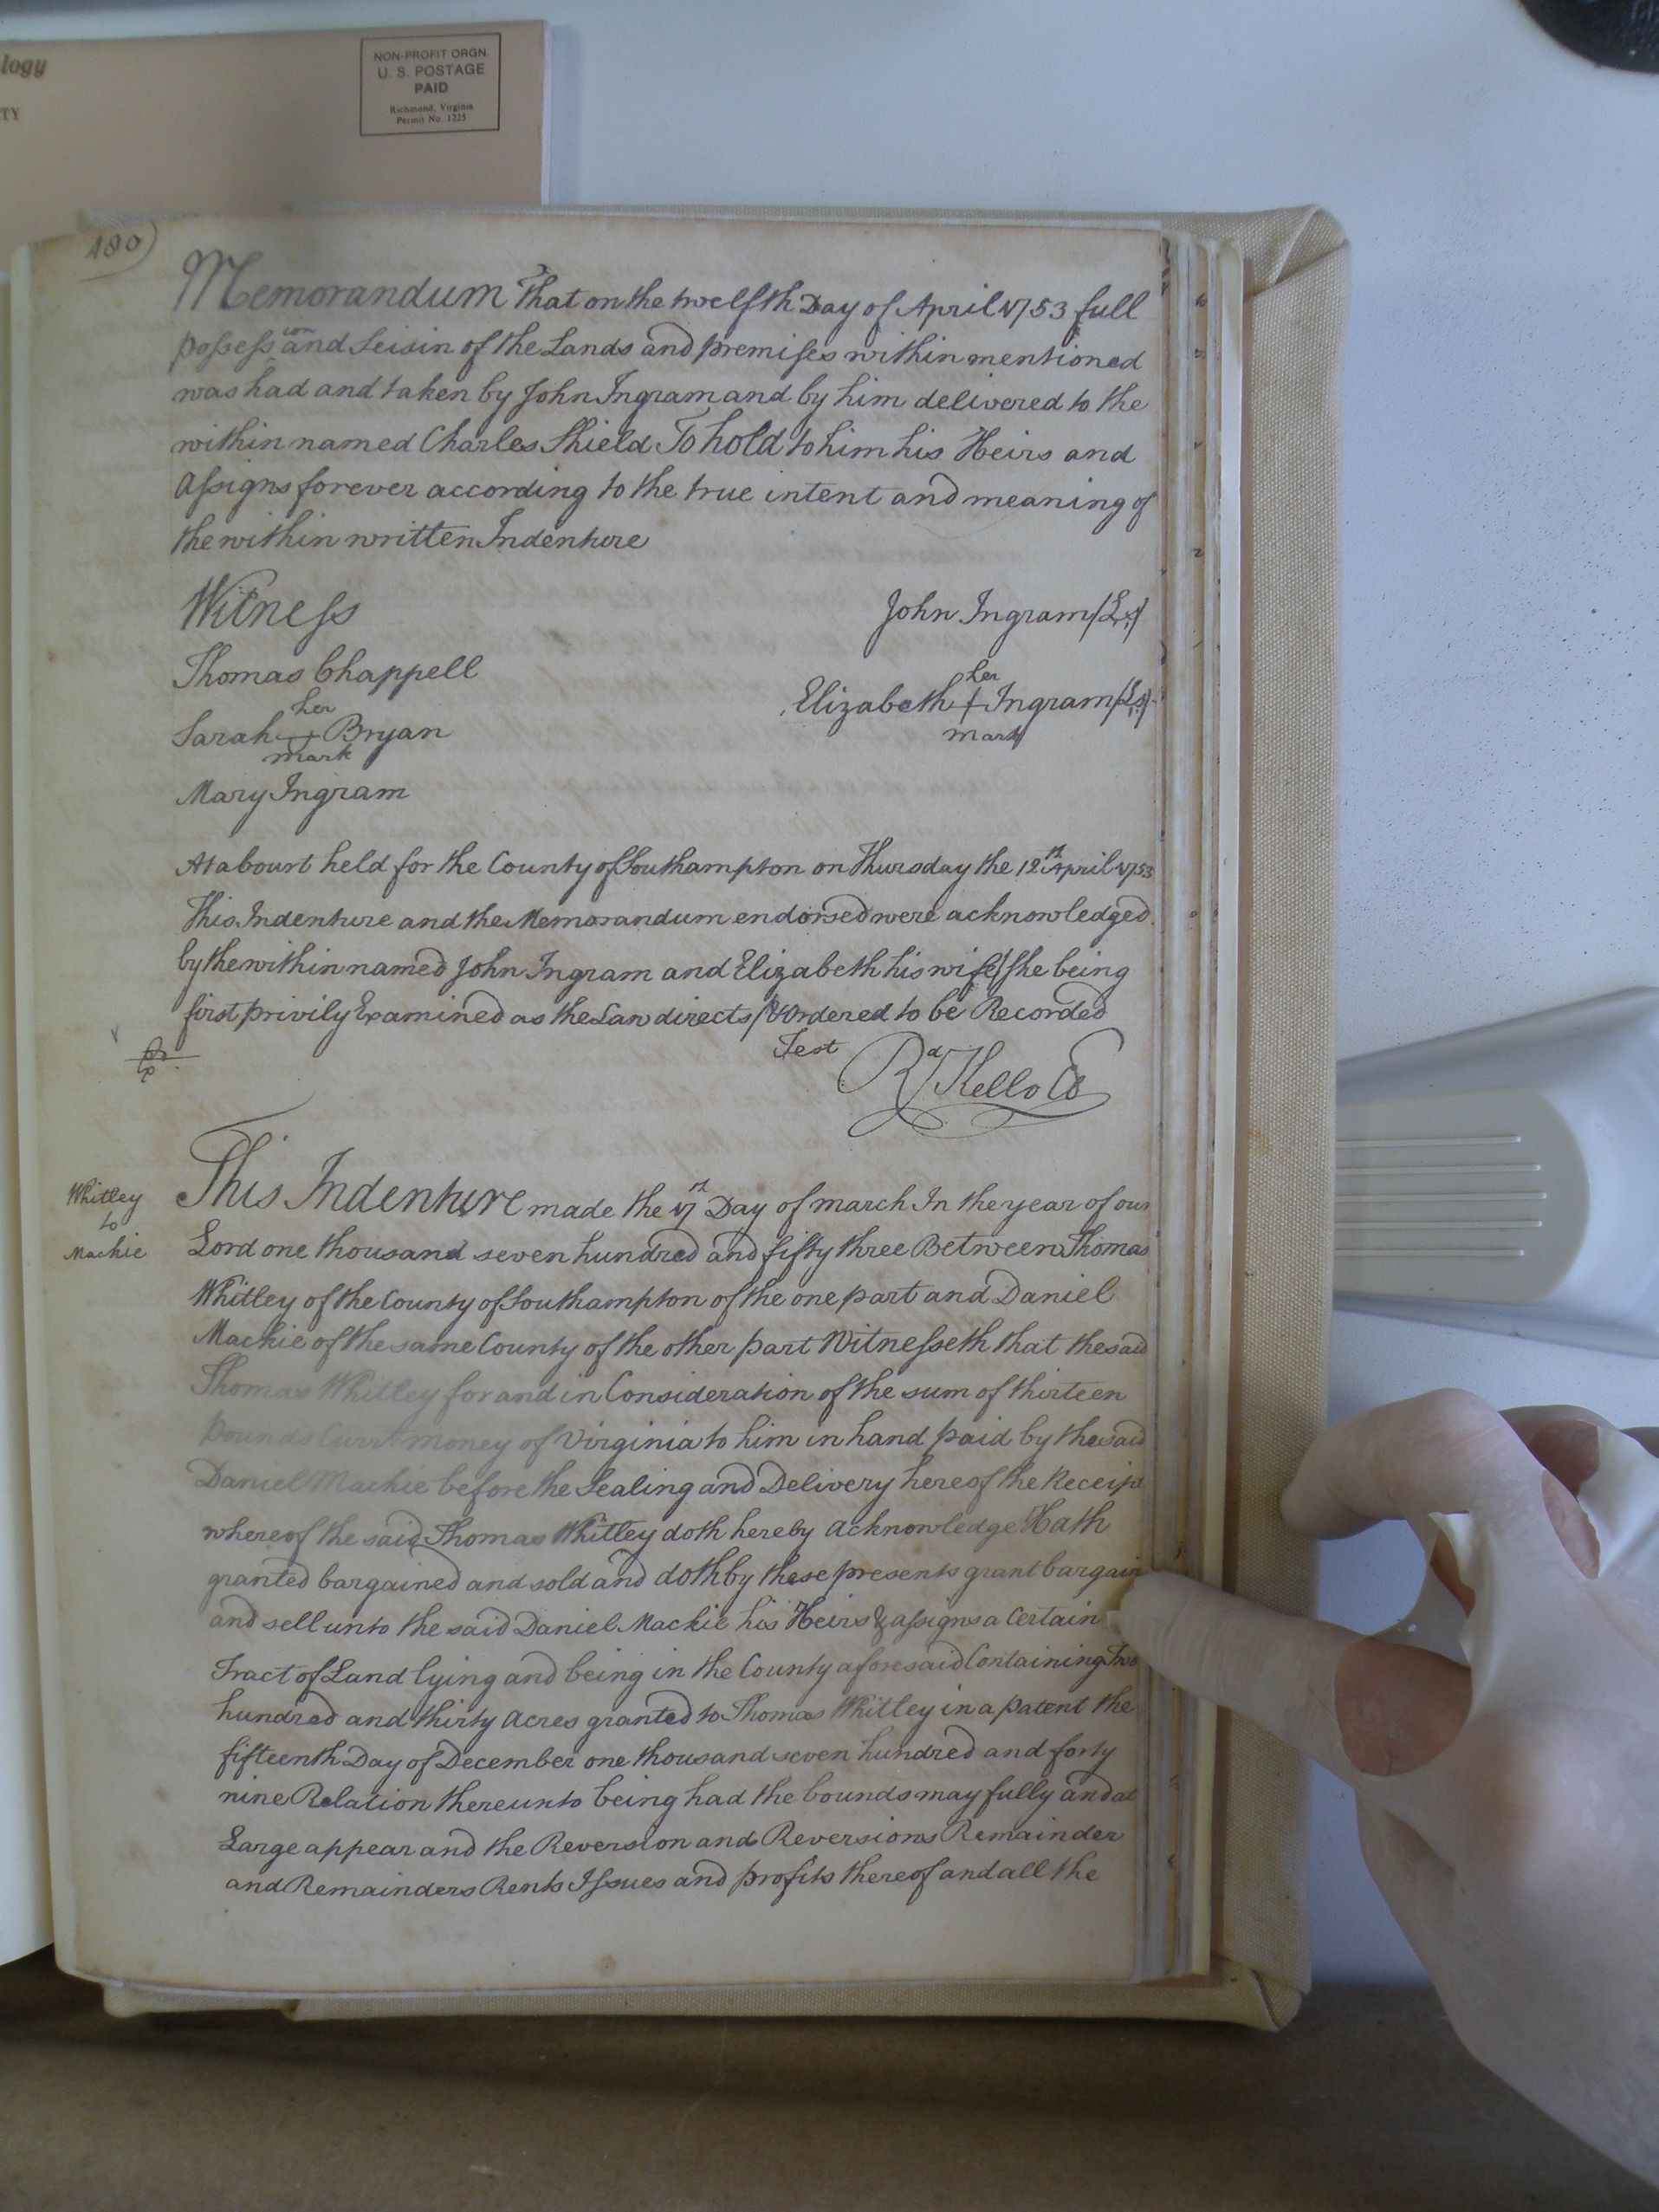 logy
TY
NON-PROFIT ORGN.
U. S. POSTAGE
PAID
Richmond, Virginia
Permit No. 1225
480)
Memorandum That on the twelfth Day of April 1753 full
possess ion and Seisin of the Lands and premises within mentioned
was had and taken by John Ingram and by him delivered to the
within named Charles Shield To hold to him his Heirs and
Assigns forever according to the true intent and meaning of
the within written Indenture
Witness
John Ingram (Ls)
Thomas Chappell
her
Elizabeth + Ingram (Ls)
mark
her
Sarah + Bryan
mark
Mary Ingram
At a Court held for the County of Southampton on Thursday the 12th April 1753
This Indenture and the Memorandum endorsed were acknowledged
by the within named John Ingram and Elizabeth his wife (she being
first privily Examined as the Law directs) & Ordered to be Recorded
Test
Rd Kello
This Indenture made the 17th Day of march In the year of our
Whitley
to
Mackie
Lord one thousand seven hundred and fifty three Between Thomas
Whitley of the County of Southampton of the one part and Daniel
Mackie of the same County of the other part Witnesseth that the said
Thomas Whitley for and in Consideration of the sum of thirteen
pounds Currt money of Virginia to him in hand paid by the said
Daniel Mackie before the Sealing and Delivery hereof the Receipt
whereof the said Thomas Whitley doth hereby acknowledge Hath
granted bargained and sold and doth by these presents grant bargain
and sell unto the said Daniel Mackie his Heirs & assigns a Certain
Tract of Land lying and being in the County aforesaid Containing Two
hundred and thirty Acres granted to Thomas Whitley in a patent the
fifteenth Day of December one thousand seven hundred and forty
nine Relation thereunto being had the bounds may fully and at
Large appear and the Reversion and Reversions Remainder
and Remainders Rents Issues and profits thereof and all the